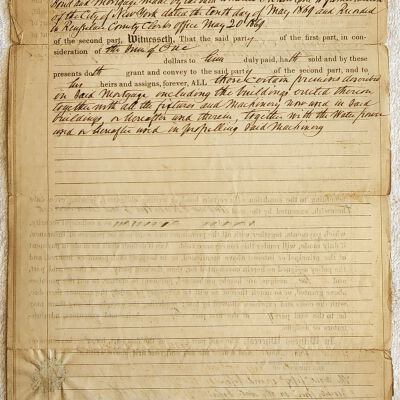 Bond and Mortgage made by
of the City of New York dated the tenth day of May 1869 and Recorded
in Rensselaer County Clerks office May 20th 1869
of the second part, Witnesseth, That the said party of the first part, in con-
sideration of the Sum of One
dollars to him duly paid, hath sold and by these
presents doth grant and convey to the said party of the second part, and to
his heirs and assigns, forever, ALL those certain premises described
in said Mortgage including the buildings erected thereon
together with all the fixtures and Machinery now used in said
buildings, or hereafter used therein, together with the Water power
used or hereafter used in propelling said Machinery